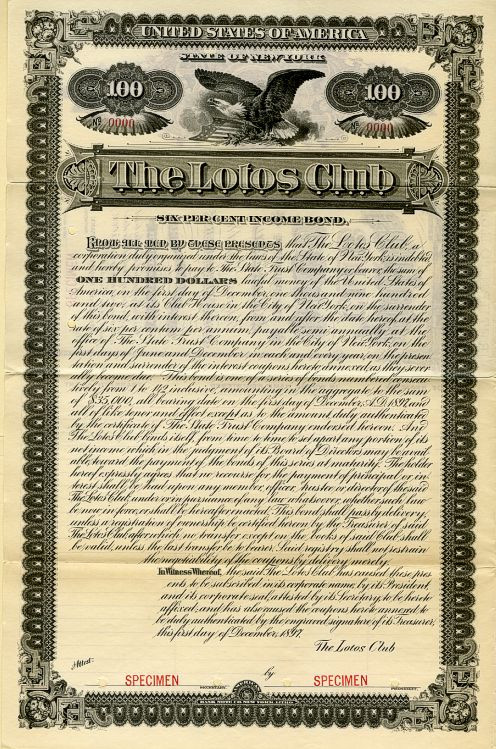 UNITED STATES OF AMERICA
STATE OF NEW YORK
100
100
No 0000
No 0000
The Lotos Club
SIX PER CENT INCOME BOND.
KNOW ALL MEN BY THESE PRESENTS that The Lotos Club, a
corporation duly organized under the laws of the State of New York, is indebted
and hereby promises to pay to The State Trust Company or bearer, the sum of
ONE HUNDRED DOLLARS lawful money of the United States of
America, on the first day of December, one thousand nine hundred
and two, at its Club House in the City of New York, on the surrender
of this bond, with interest thereon, from and after the date hereof, at the
rate of six per centum per annum, payable semi annually, at the
office of The State Trust Company in the City of New York, on the
first days of June and December in each and every year, on the presen
tation and surrender of the interest coupons hereto annexed as they sever
ally become due. This bond is one of a series of bonds numbered consecu
tively from 1 to 112 inclusive, amounting in the aggregate to the sum
of $35,000, all bearing date on the first day of December, A.D. 1897, and
all of like tenor and effect except as to the amount, duly authenticated
by the certificate of The State Trust Company endorsed hereon. And
The Lotos Club binds itself, from time to time to set apart any portion of its
net income which in the judgment of its Board of Directors may be avail
able, toward the payment of the bonds of this series at maturity. The holder
hereof expressly agrees that no recourse for the payment of principal or in-
terest shall be had upon any member, officer, trustee or director of the said
The Lotos Club, under or in pursuance of any law whatsoever, whether such law
be now in force, or shall be hereafter enacted. This bond shall pass by delivery,
unless a registration of ownership be certified hereon by the Treasurer of said
The Lotos Club, after which no transfer except on the books of said Club shall
be valid, unless the last transfer be to bearer. Said registry shall not restrain
the negotiability of the coupons by delivery merely.
In Witness Whereof, the said The Lotos Club has caused these pres
ents to be subscribed in its corporate name, by its President
and its corporate seal, attested by its Secretary, to be hereto
affixed, and has also caused the coupons hereto annexed to
be duly authenticated by the engraved signature of its Treasurer,
this first day of December, 1897.
The Lotos Club
Attest:
by
SPECIMEN
SPECIMEN
SECRETARY.
PRESIDENT.